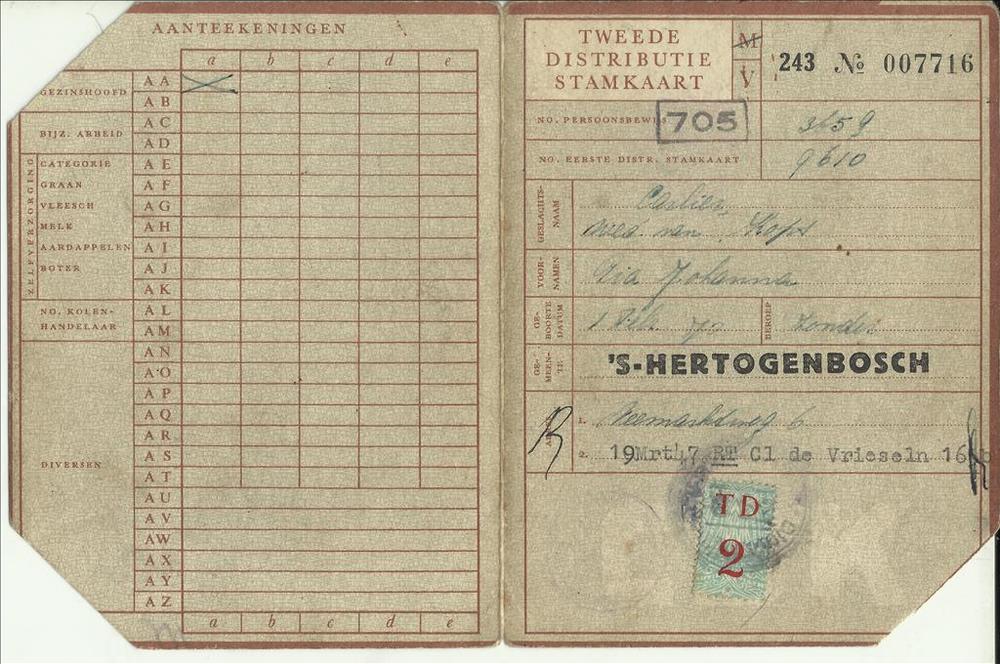 AANTEEKENINGEN
a b c d e
GEZINSHOOFD
AA
AB
BIJZ. ARBEID
AC
AD
ZELFVERZORGING
CATEGORIE
GRAAN
VLEESCH
MELK
AARDAPPELEN
BOTER
AE
AF
AG
AH
AI
AJ
AK
NO. KOLEN-
HANDELAAR
AL
AM
DIVERSEN
AN
AO
AP
AQ
AR
AS
AT
AU
AV
AW
AX
AY
AZ
a b c d e
TWEEDE
DISTRIBUTIE
STAMKAART
M
V
243 No 007716
NO. PERSOONSBEWIJS
705
3659
NO. EERSTE DISTR. STAMKAART
9610
GESLACHTS-
NAAM
Carlier,
wed. van
VOOR-
NAMEN
Johanna
GE-
BOORTE
DATUM
1
BEROEP
Zonder
GE-
MEEN-
TE
'S-HERTOGENBOSCH
1. Veemarktweg 6
2. 19Mrt47 RT Cl de Vrieseln 16
TD
2